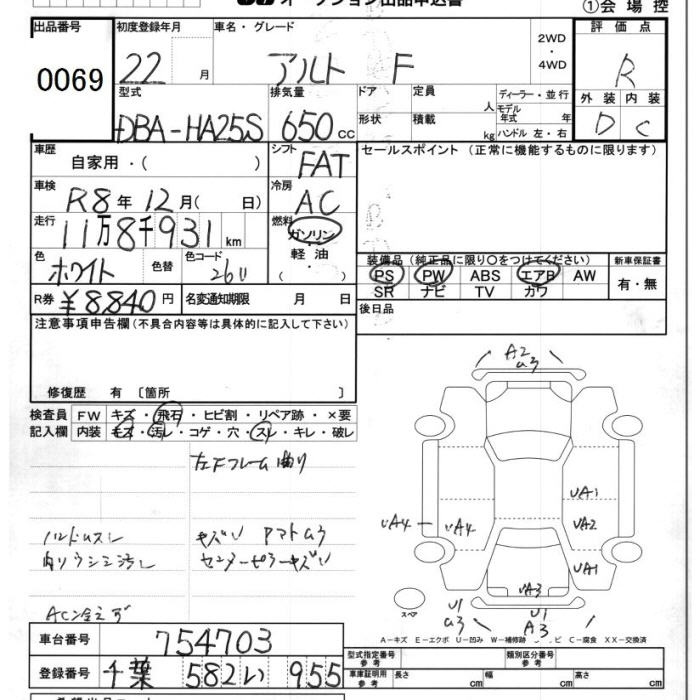 オークション出品申込書
①会場控
出品番号 0069
初度登録年月 22 月
車名・グレード アルト F
2WD・4WD
評価点 R
外装 D 内装 C
型式 DBA-HA25S
排気量 650 cc
ドア 形状
定員 人
積載 kg
ディーラー・並行
モデル年式 年
ハンドル 左・右
車歴 自家用・( )
シフト FAT
セールスポイント (正常に機能するものに限ります)
車検 R8年12月( 日)
冷房 AC
走行 11万8千931km
燃料 ガソリン 軽油・( )
色 ホワイト 色替
色コード 26U
装備品 (純正品に限り○をつけてください)
PS PW ABS エアB AW
SR ナビ TV カワ
新車保証書 有・無
R券 ¥8,840円
名変通知期限 月 日
後日品
注意事項申告欄(不具合内容等は具体的に記入して下さい)
修復歴 有 〔箇所 〕
検査員 FW キズ・飛石・ヒビ割・リペア跡・×要
記入欄 内装 キズ・汚レ・コゲ・穴・スレ・キレ・破レ
左Fフレーム曲り
ハンドルスレ キズい
内ハリウラシミ汚し センターピラーキズい
AC冷えず
A2
U3
UA1
UA4 UA4 UA2
UA1
UA3
U1
U3
U1
A3
スペア
A-キズ E-エクボ U-凹み W-補修跡 C-腐食 XX-交換済
車台番号 754703
登録番号 千葉 582 い 955
型式指定番号 参考
類別区分番号 参考
車庫証明用 参考 長さ cm 幅 cm 高さ cm